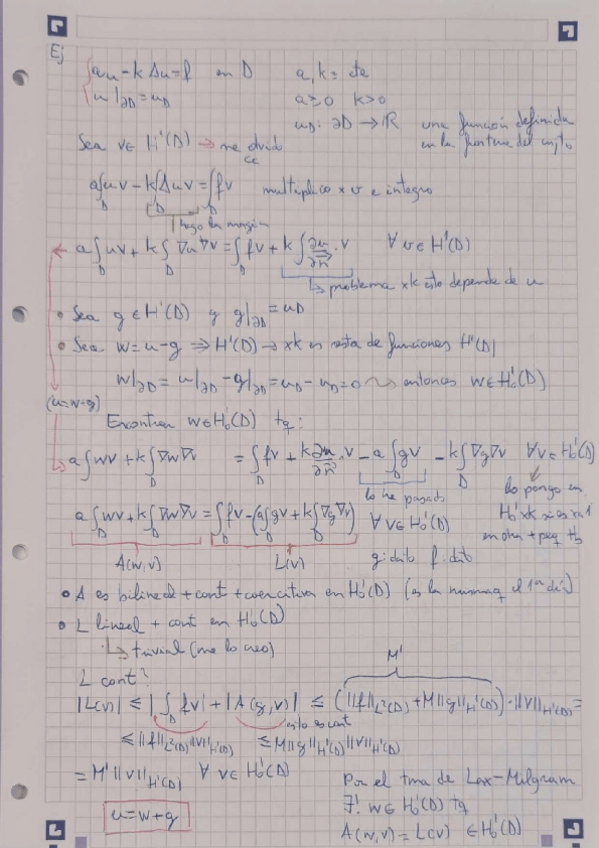 Ej
{ au - kΔu = f en D a, k = cte
{ u|∂D = u_D a ≥ 0 k > 0
u_D: ∂D → ℝ una función definida
en la frontera del cnjto
Sea v ∈ H¹(D) → me olvido
a∫_D uv - k∫_D Δu v = ∫_D fv multiplico x v e integro
hago la
a∫_D uv + k∫_D ∇u∇v = ∫_D fv + k∫ ∂u/∂n · v ∀v ∈ H¹(D)
↳ problema xk esto depende de u
• Sea g ∈ H¹(D) y g|∂D = u_D
• Sea w = u - g ⇒ H¹(D) → xk es resta de funciones H¹(D)
w|∂D = u|∂D - g|∂D = u_D - u_D = 0 ⤳ entonces w ∈ H¹₀(D)
(u=w+g)
Encontrar w ∈ H¹₀(D) tq:
a∫wv + k∫_D ∇w∇v = ∫_D fv + k∂u/∂n · v - a∫_D gv - k∫_D ∇g∇v ∀v ∈ H¹₀(D)
lo he pasado lo pongo en
H¹₀ xk
a∫_D wv + k∫_D ∇w∇v = ∫_D fv - (a∫_D gv + k∫_D ∇g∇v) ∀v ∈ H¹₀(D)
en otra + peq
A(w,v) L(v) g: dato f: dato
• A es bilineal + cont + coercitiva en H¹₀(D) (es la misma q el 1er
• L lineal + cont en H¹₀(D)
↳ trivial (me lo creo)
M'
L cont?
|L(v)| ≤ |∫_D fv| + |A(g,v)| ≤ (||f||_L²(D) + M||g||_H¹(D)) · ||v||_H¹(D) =
≤ ||f||_L²(D) ||v||_H¹(D) ≤ M||g||_H¹(D) ||v||_H¹(D)
= M' ||v||_H¹(D) ∀ v ∈ H¹₀(D)
Por el tma de Lax-Milgram
∃! w ∈ H¹₀(D) tq
u = w + g
A(w,v) = L(v) ∈ H¹₀(D)